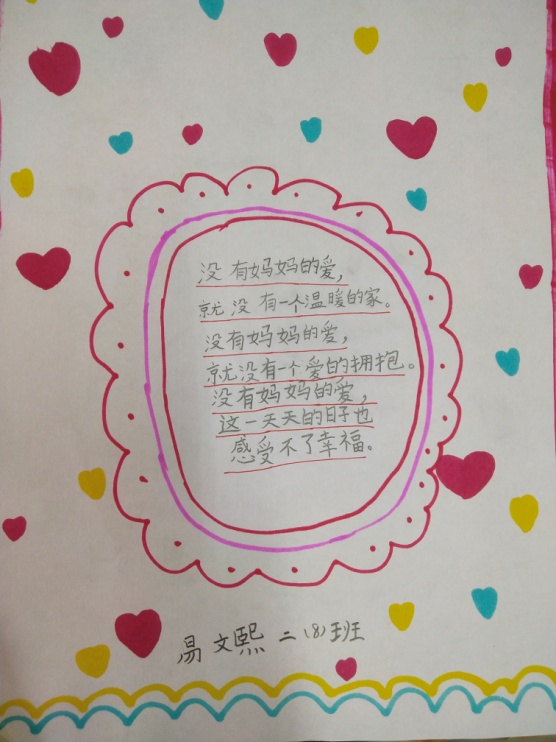 没有妈妈的爱，
就没有一个温暖的家。
没有妈妈的爱，
就没有一个爱的拥抱。
没有妈妈的爱，
这一天天的日子也
感受不了幸福。
易文熙 二(8)班